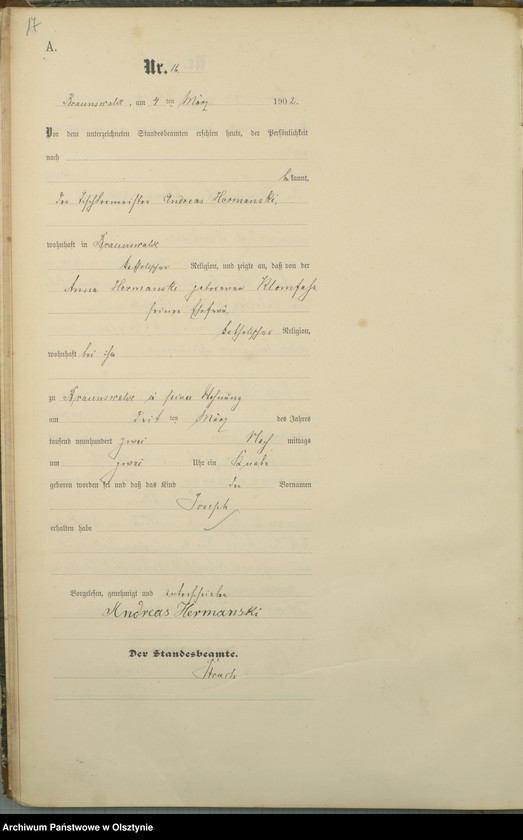 17
A.
Nr. 16
Braunswalde, am 4 ten März 1902.
Vor dem unterzeichneten Standesbeamten erschien heute, der Persönlichkeit
nach
bekannt,
der Tischlermeister Andreas Hermanski,
wohnhaft in Braunswalde
katholischer Religion, und zeigte an, daß von der
Anna Hermanski geborenen Klomfass
seiner Ehefrau
katholischer Religion,
wohnhaft bei ihm
zu Braunswalde in seiner Wohnung
am drit ten März des Jahres
tausend neunhundert zwei Nach mittags
um zwei Uhr ein Knabe
geboren worden sei und daß das Kind den Vornamen
Joseph
erhalten habe
Vorgelesen, genehmigt und unterschrieben
Andreas Hermanski
Der Standesbeamte.
Archiwum Państwowe w Olsztynie